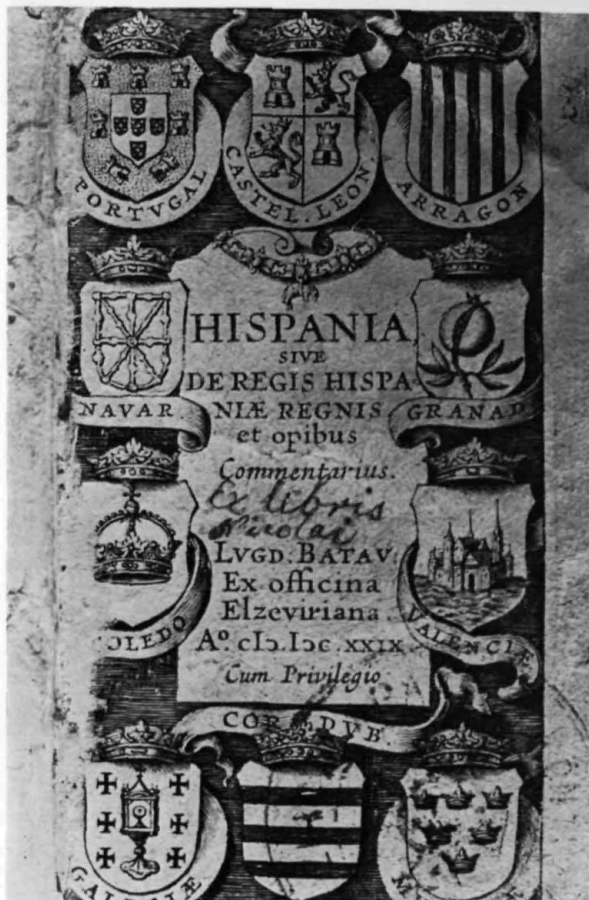 PORTVGAL
CASTEL. LEON.
ARRAGON
HISPANIA,
SIVE
DE REGIS HISPA-
NIÆ REGNIS
et opibus
Commentarius.
Ex libris
Nicolai
LVGD. BATAV.
Ex officina
Elzeviriana.
Aº. cIɔ.Iɔc.xxix
Cum Privilegio
NAVAR
GRANAD
OLEDO
VALENCIÆ
COR DVB.